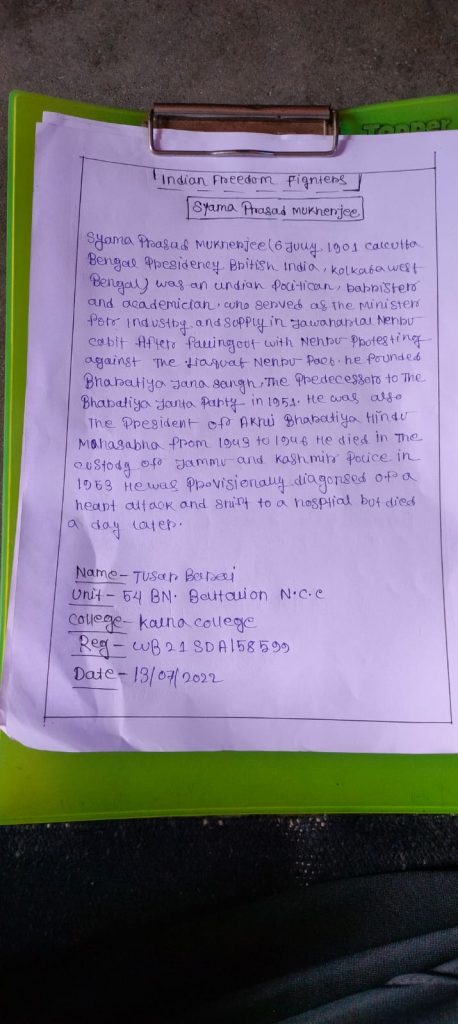 TOPPER
Indian Freedom Fighters
Syama Prasad Mukherjee
Syama Prasad Mukherjee (6 July, 1901 calcutta
Bengal Presidency British India, kolkata west
Bengal) was an indian politican, barrister
and academician, who served as the Minister
for Industry and supply in Jawaharlal Nehru
cabit After falling out with Nehru Protesting
against The liaquat Nehru Pact. he founded
Bharatiya Jana sangh, The Predecessor to The
Bharatiya Janta Party in 1951. He was also
The President of Akhil Bharatiya Hindu
Mahasabha from 1943 to 1946 He died in The
custody of Jammu and Kashmir Police in
1953 He was Provisionally diagonsed of a
heart attack and shift to a hospital but died
a day later.
Name - Tusar Barai
Unit - 54 BN. Battalion N.c.c
College - Kalna college
Reg - WB21SDA158599
Date - 13/07/2022